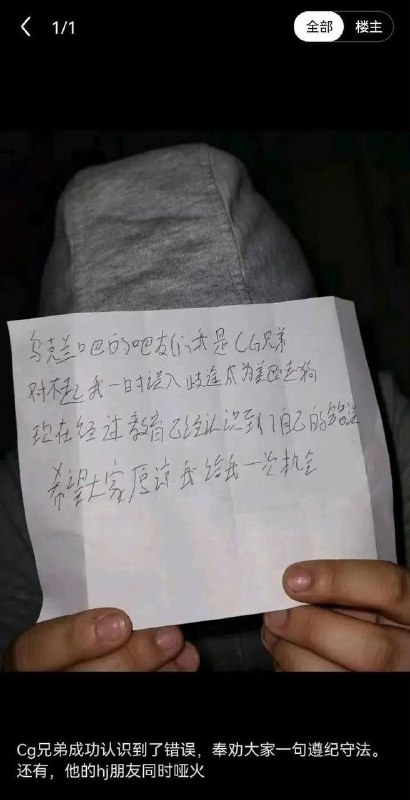 1/1
全部 楼主
乌克兰吧的吧友们我是CG兄弟
对不起我一时误入歧途成为美西走狗
现在经过教育已经认识到了自己的错误
希望大家原谅我给我一次机会
Cg兄弟成功认识到了错误，奉劝大家一句遵纪守法。
还有，他的hj朋友同时哑火